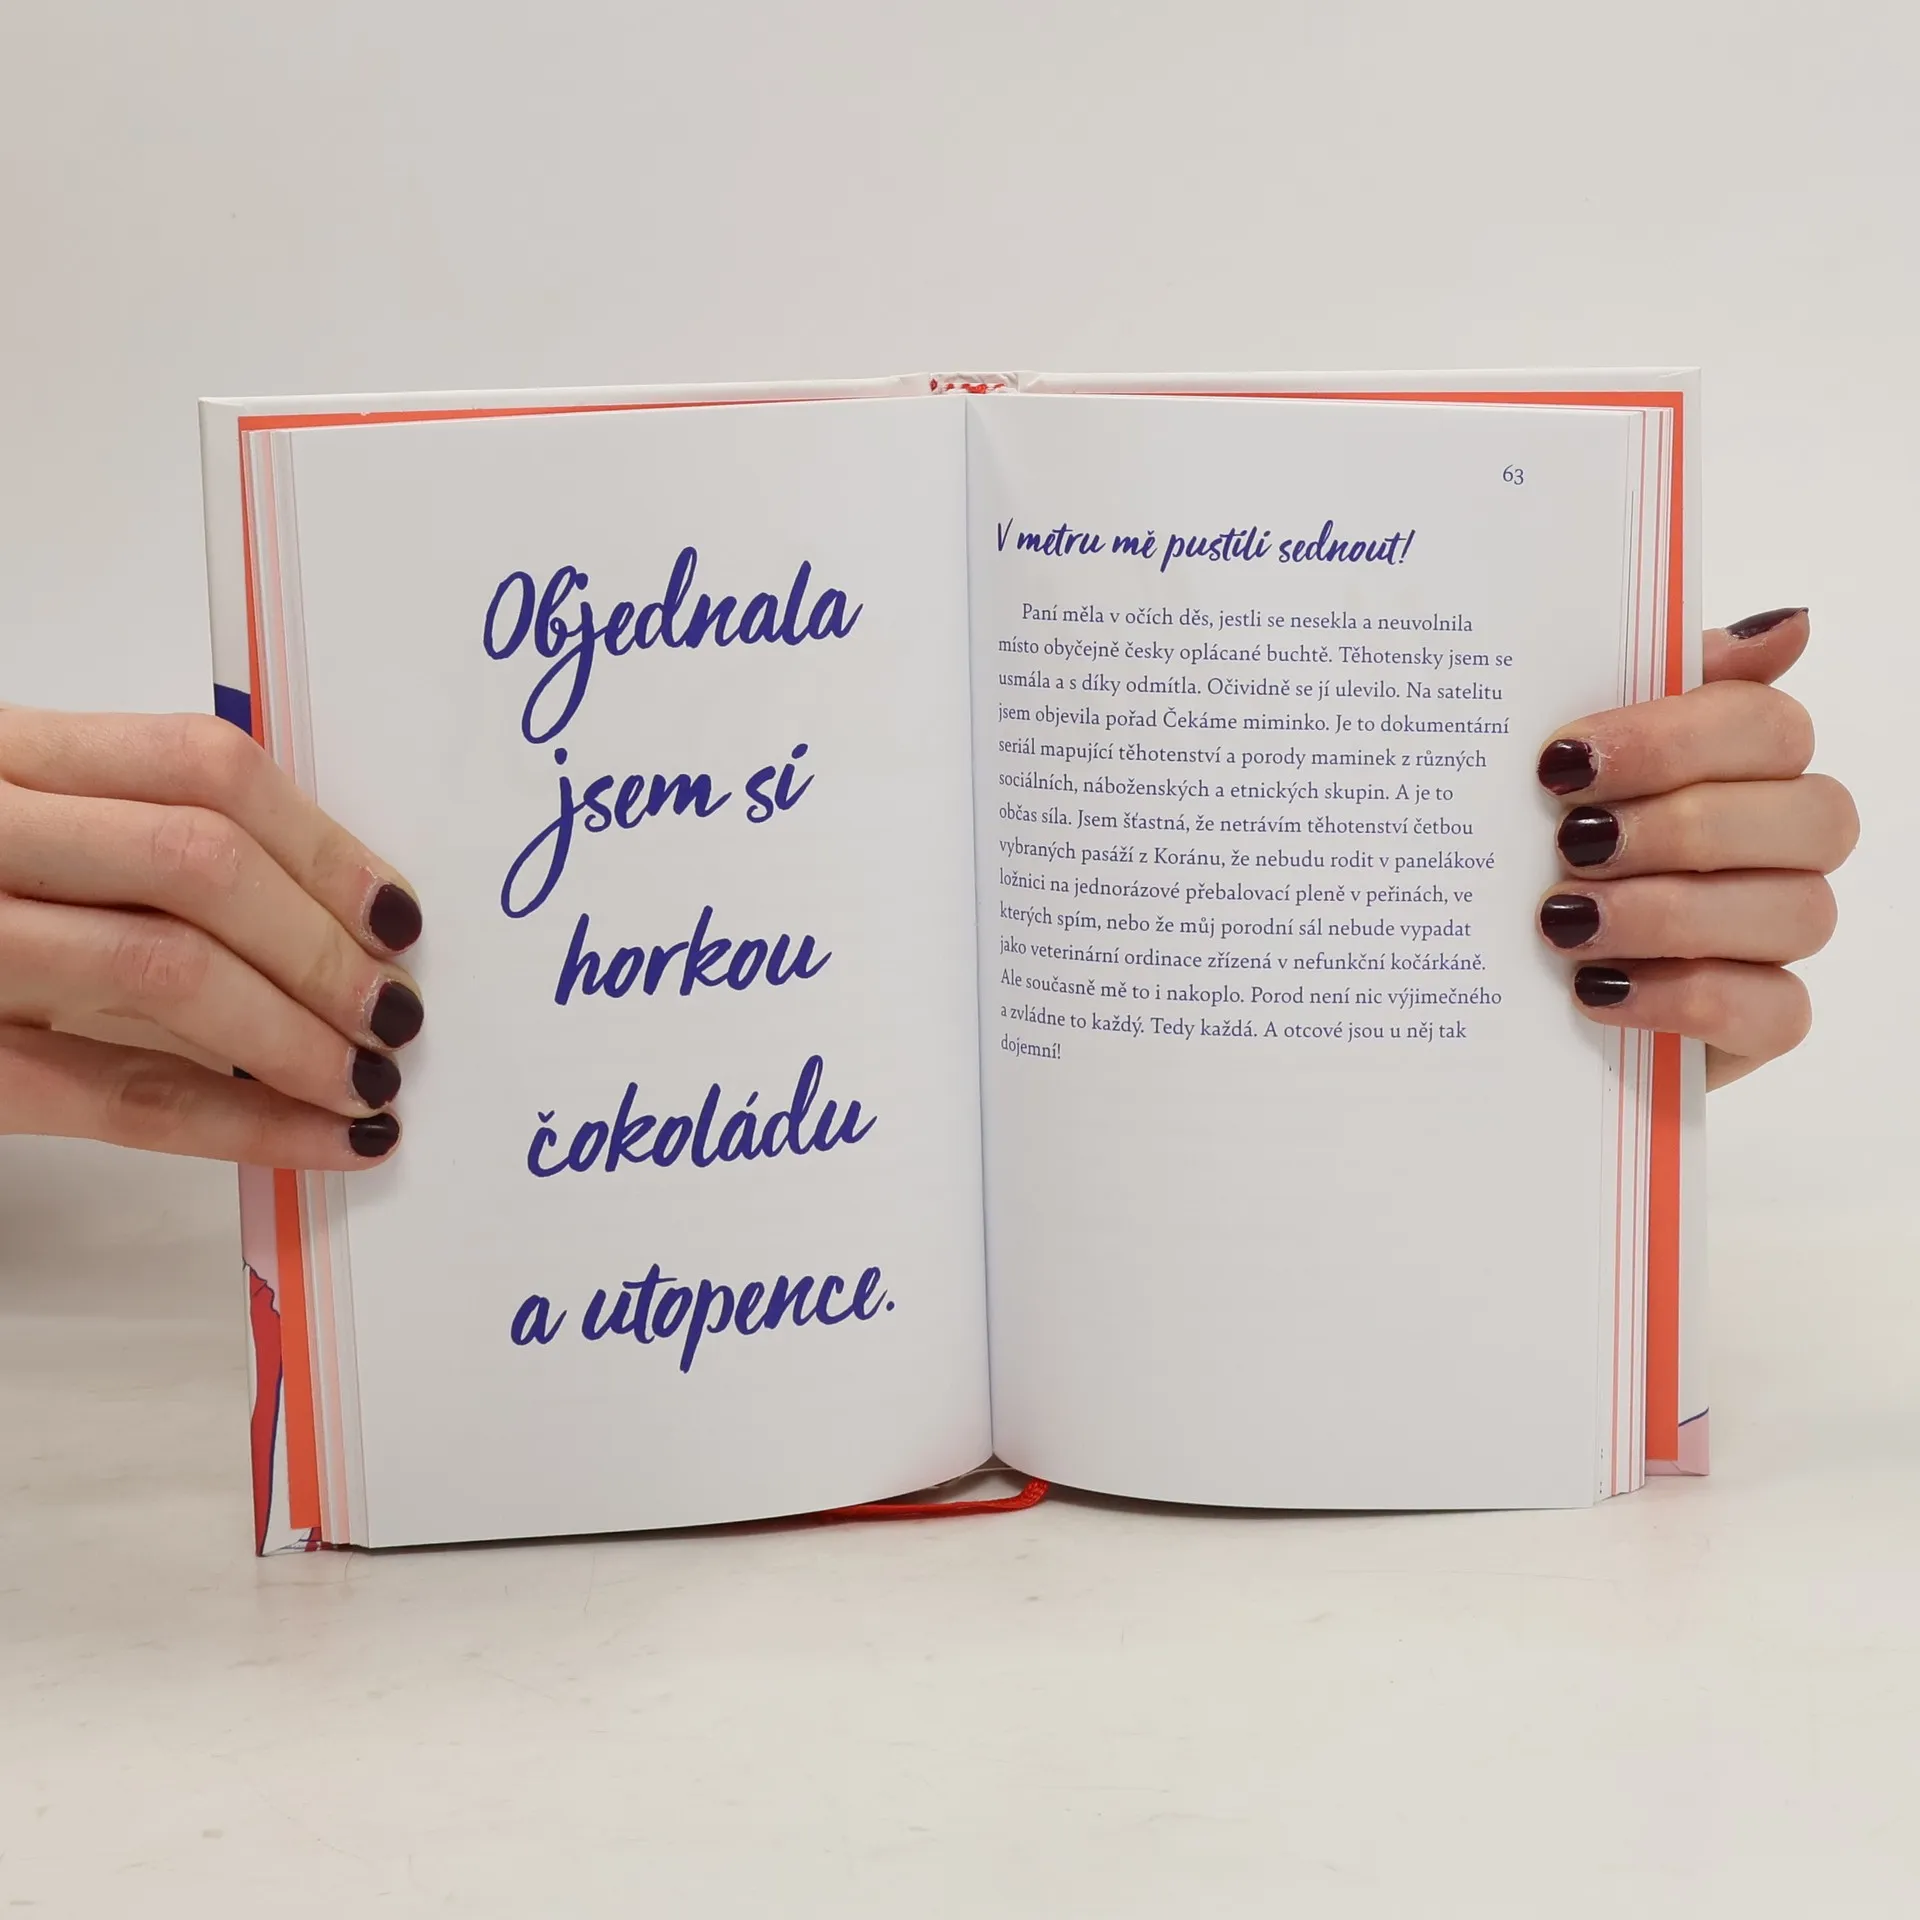 Objednala
jsem si
horkou
čokoládu
a utopence.
63
V metru mě pustili sednout!
Paní měla v očích děs, jestli se nesekla a neuvolnila
místo obyčejně česky oplácané buchtě. Těhotensky jsem se
usmála a s díky odmítla. Očividně se jí ulevilo. Na satelitu
jsem objevila pořad Čekáme miminko. Je to dokumentární
seriál mapující těhotenství a porody maminek z různých
sociálních, náboženských a etnických skupin. A je to
občas síla. Jsem šťastná, že netrávím těhotenství četbou
vybraných pasáží z Koránu, že nebudu rodit v panelákové
ložnici na jednorázové přebalovací pleně v peřinách, ve
kterých spím, nebo že můj porodní sál nebude vypadat
jako veterinární ordinace zřízená v nefunkční kočárkáně.
Ale současně mě to i nakoplo. Porod není nic výjimečného
a zvládne to každý. Tedy každá. A otcové jsou u něj tak
dojemní!